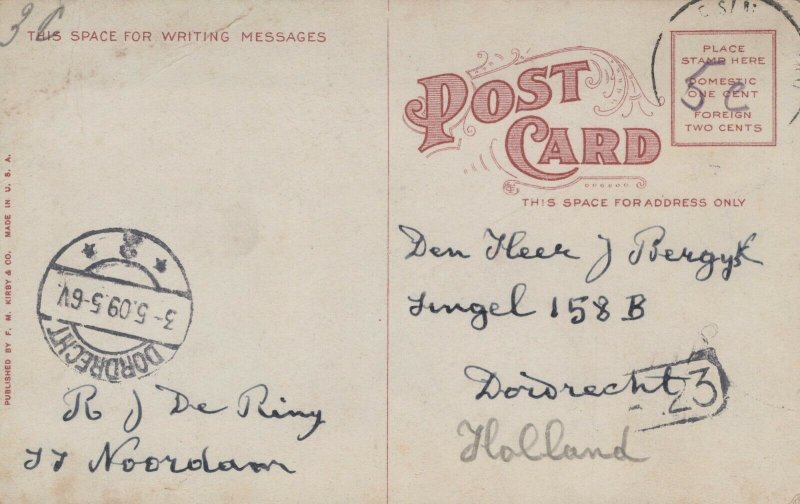 3c
THIS SPACE FOR WRITING MESSAGES
PUBLISHED BY F. M. KIRBY & CO. MADE IN U. S. A.
2
3-5.09.5-6V
DORDRECHT
R J De Ring
SS Noordam
POST
CARD
THIS SPACE FOR ADDRESS ONLY
PLACE
STAMP HERE
DOMESTIC
ONE CENT
FOREIGN
TWO CENTS
5c
Den Heer J Bergyk
Singel 158 B
Dordrecht
23
Holland